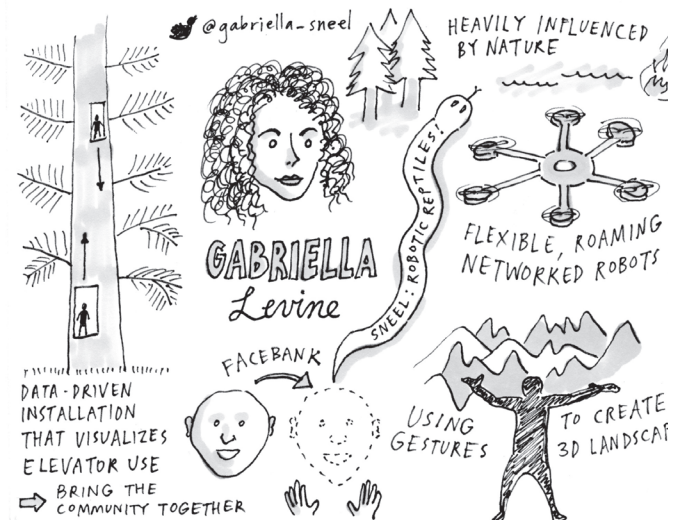 @gabriella_sneel
HEAVILY INFLUENCED
BY NATURE
SNEEL: ROBOTIC REPTILES!
GABRIELLA
Levine
FLEXIBLE, ROAMING
NETWORKED ROBOTS
FACEBANK
DATA-DRIVEN
INSTALLATION
THAT VISUALIZES
ELEVATOR USE
BRING THE
COMMUNITY TOGETHER
USING
GESTURES
TO CREATE
3D LANDSCAP